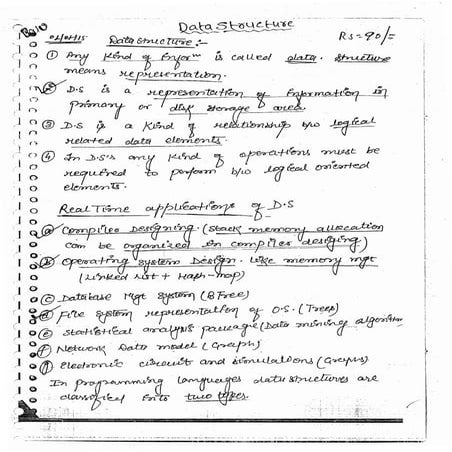 Data Structure
Rs=90/=
Data structure:-
① Any kind of Inforᵐ is called data. Structure
means representation.
② D.S is a representation of Information in
primary or disk storage area.
③ D.S is a kind of relationship b/w logical
related data elements.
④ In D.S's any kind of operations must be
required to perform b/w logical oriented
elements.
Real Time applications of D.S
ⓐ Compiler Designing. (Stack memory allocation
can be organized in compiler designing)
ⓑ Operating System Design. like memory mgt
(Linked list + Hash-map)
ⓒ Database Mgt System (B Tree)
ⓓ File System representation of O.S. (Trees)
ⓔ Statistical analysis package (Data mining algorithm
ⓕ Network Data model (Graph)
ⓖ Electronic circuit and simulations (Graphs)
In programming languages data structures are
classified into two types.